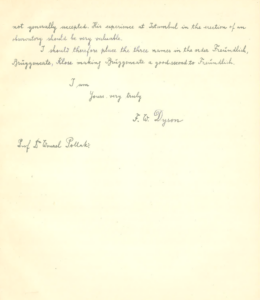 not generally accepted. His experience at Istanbul in the erection of an
observatory should be very valuable.
I should therefore place the three names in the order Freundlich,
Brüggencate, Klose making Brüggencate a good second to Freundlich.
I am
Yours very truly
F. W. Dyson
Prof Dr Pollak